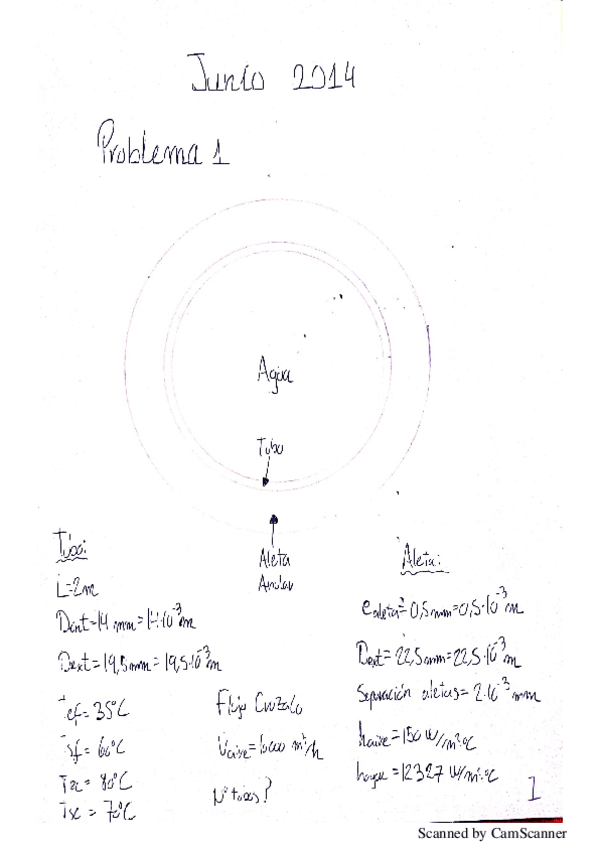 Junio 2014
Problema 1
Agua
Tubo
Aleta
Anular
Tubo:
L=2m
Dint=14 mm=14·10⁻³m
Dext=19,5mm=19,5·10⁻³m
Tef=35°C
Tsf=60°C
Tec=80°C
Tsc=70°C
Flujo Cruzado
V̇aire=6000 m³/h
Nº tubos?
Aleta:
e aleta=0,5mm=0,5·10⁻³m
Dext=22,5mm=22,5·10⁻³m
Separación aletas=2·10⁻³mm
haire=150 W/m²·°C
hagua=12327 W/m²·°C
1
Scanned by CamScanner